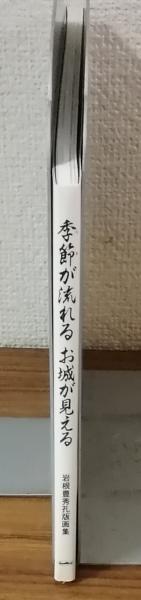 季節が流れる お城が見える
岩根豊秀孔版画集